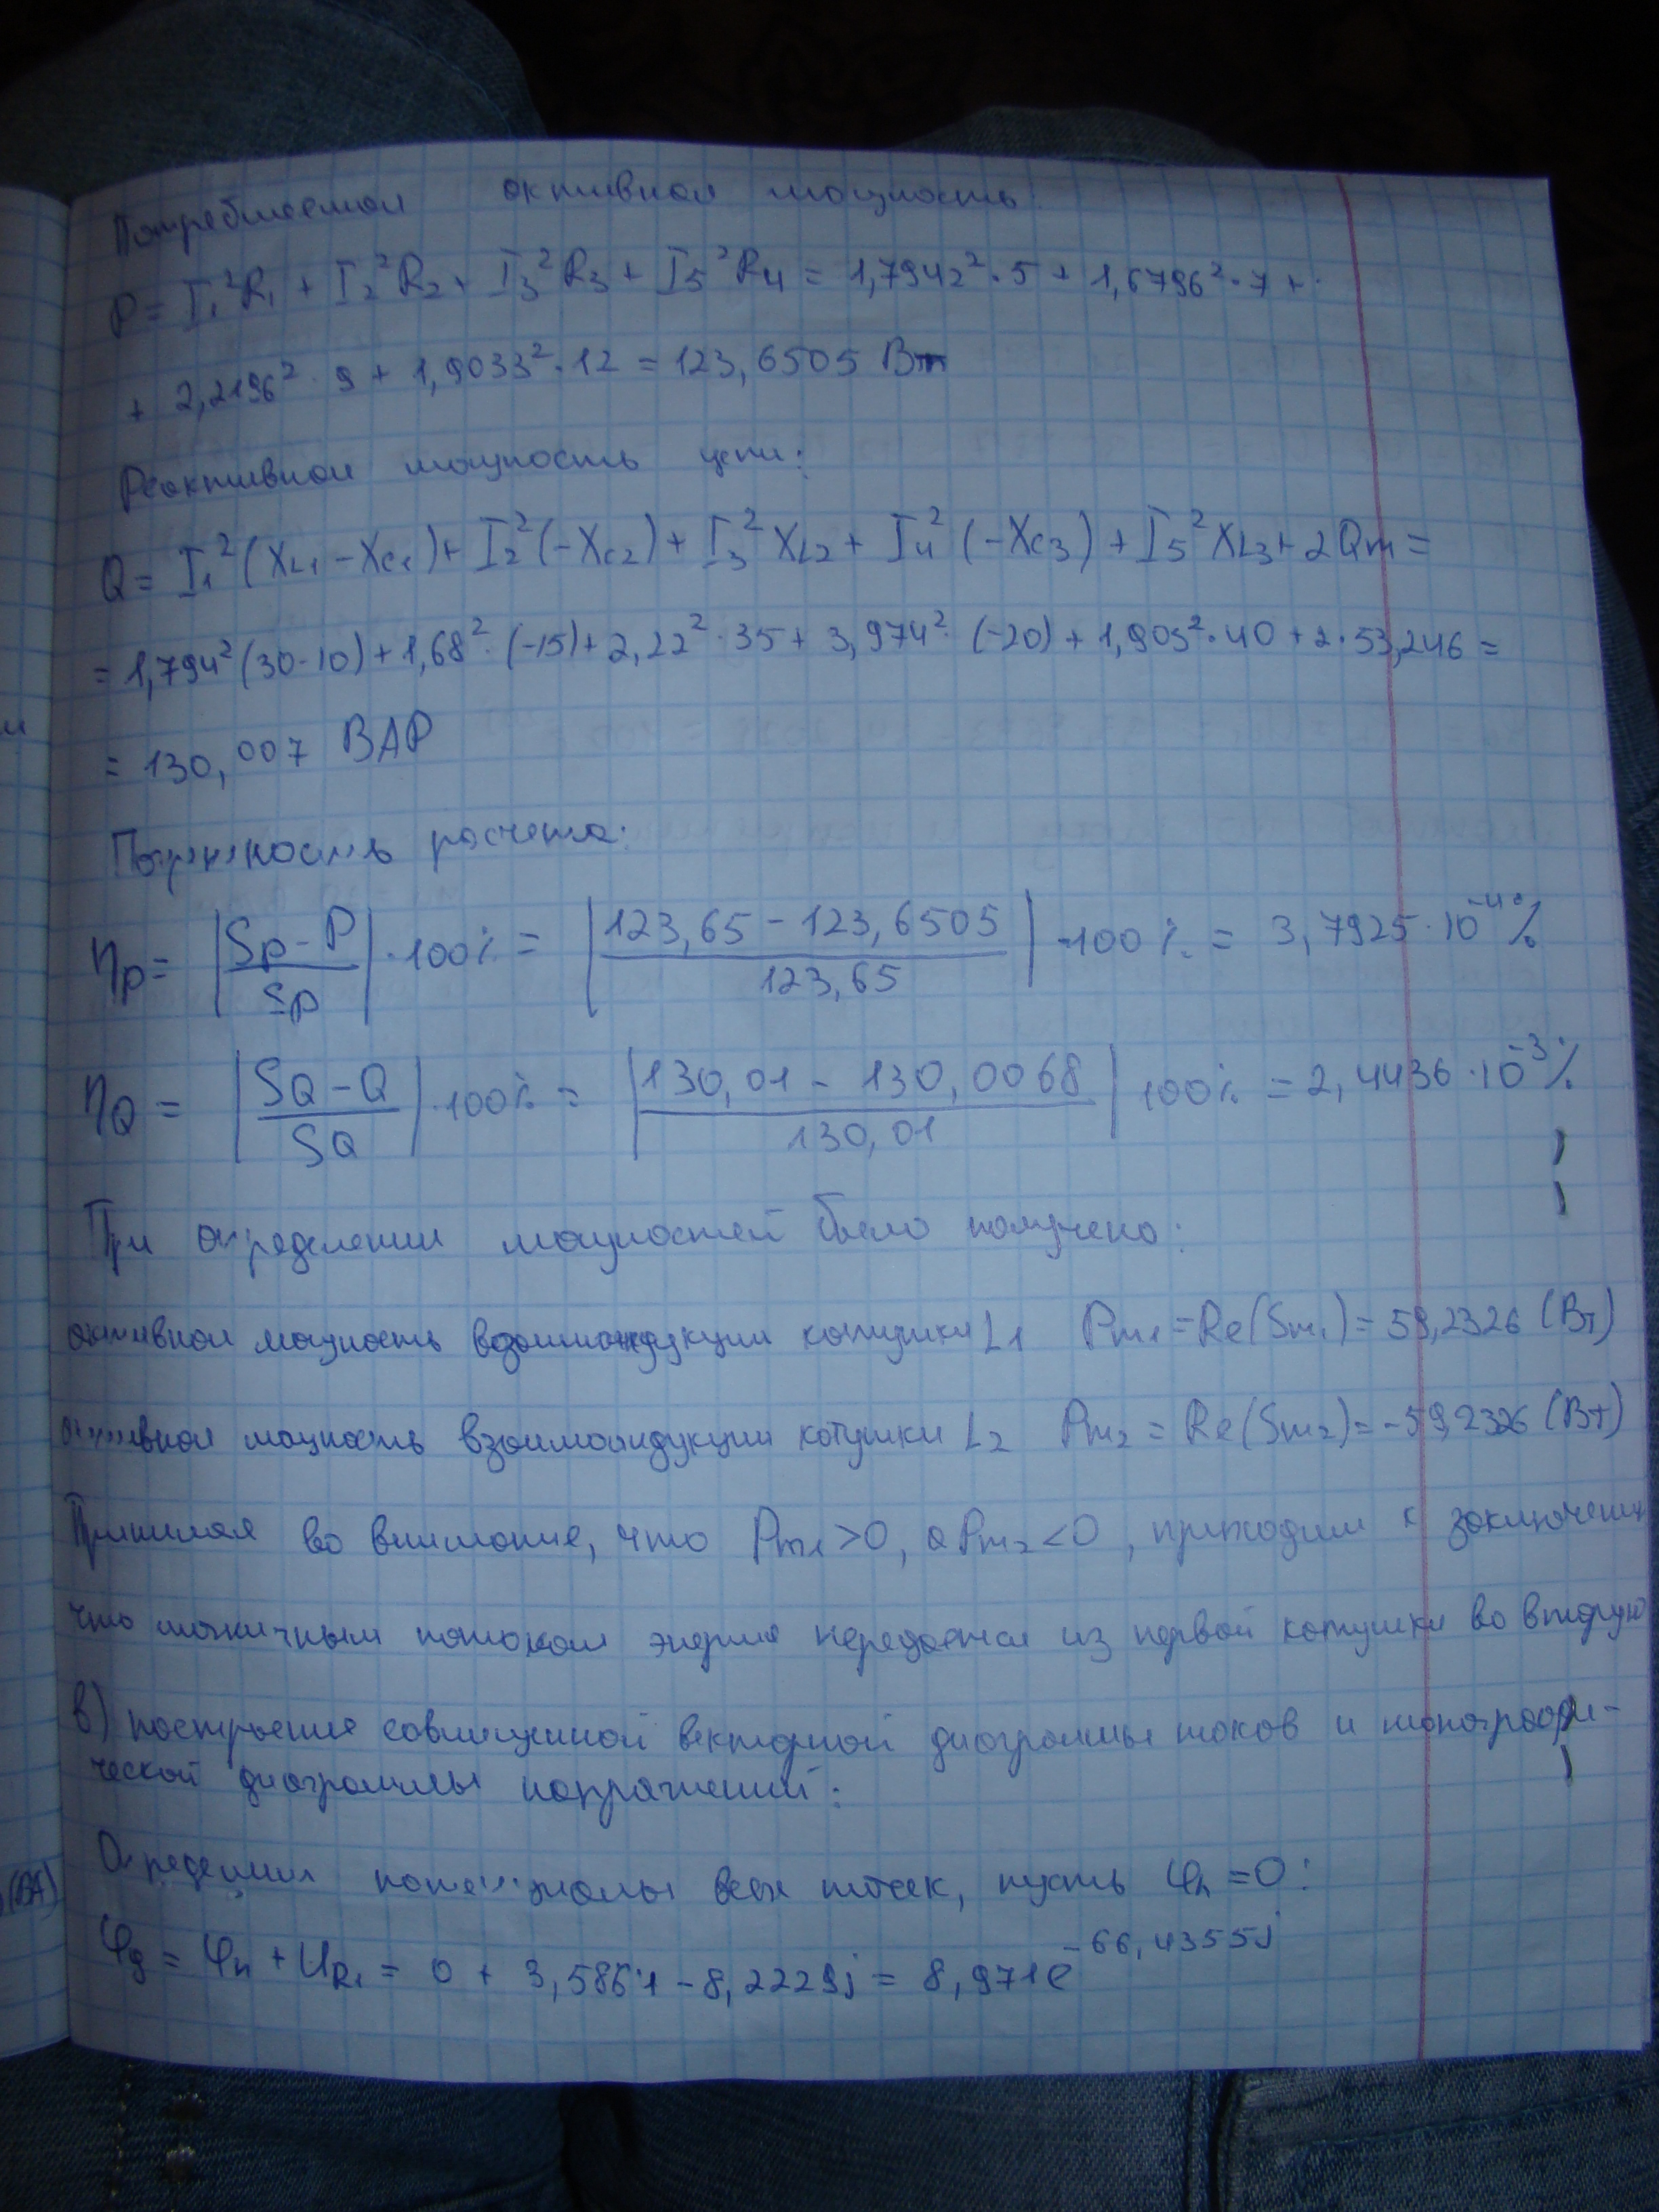 Потребляемая активная мощность
P = I₁²R₁ + I₂²R₂ + I₃²R₃ + I₅²R₄ = 1,7942²·5 + 1,6796²·7 +
+ 2,2196²·9 + 1,9033²·12 = 123,6505 Вт
Реактивная мощность цепи:
Q = I₁²(XL₁ - XC₁) + I₂²(-XC₂) + I₃²XL₂ + I₄²(-XC₃) + I₅²XL₃ + 2Qm =
= 1,794²(30-10) + 1,68²·(-15) + 2,22²·35 + 3,974²·(-20) + 1,903²·40 + 2·53,246 =
= 130,007 ВАР
Погрешность расчета:
ηp = |(Sp - P)/Sp|·100% = |(123,65 - 123,6505)/123,65|·100% = 3,7925·10⁻⁴%
ηQ = |(SQ - Q)/SQ|·100% = |(130,01 - 130,0068)/130,01| 100% = 2,4436·10⁻³%
При определении мощностей было получено:
активная мощность взаимоиндукции катушки L1 Pm₁ = Re(Sm₁) = 59,2326 (Вт)
активная мощность взаимоиндукции катушки L2 Pm₂ = Re(Sm₂) = -59,2326 (Вт)
Принимая во внимание, что Pm₁>0, а Pm₂<0, приходим к заключению
что магнитным потоком энергия передается из первой катушки во вторую
в) построение совмещенной векторной диаграммы токов и топографи-
ческой диаграммы напряжений:
Определим потенциалы всех точек, пусть φn = 0:
φg = φn + UR₁ = 0 + 3,5861 - 8,2229j = 8,971e^-66,4355j
(ВА)